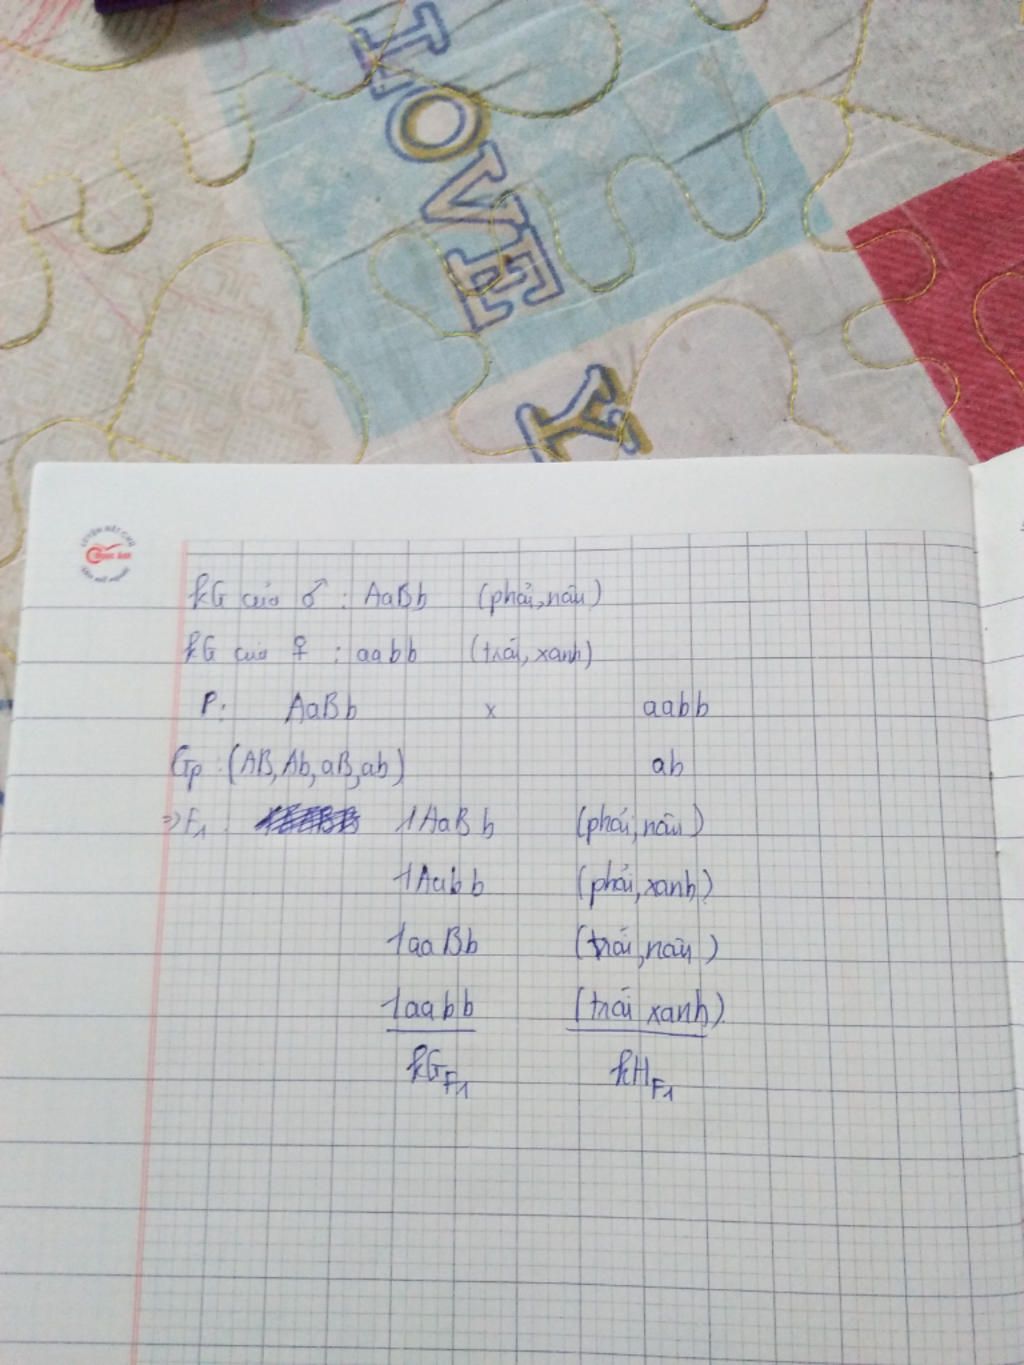 LOVE
Y
KG của ♂ : AaBb (phải, nâu)
KG của ♀ : aabb (trái, xanh)
P: AaBb x aabb
Gp : (AB, Ab, aB, ab) ab
=> F1 : 1AaBb (phải, nâu)
1Aabb (phải, xanh)
1aaBb (trái, nâu)
1aabb (trái xanh)
KG F1 KH F1